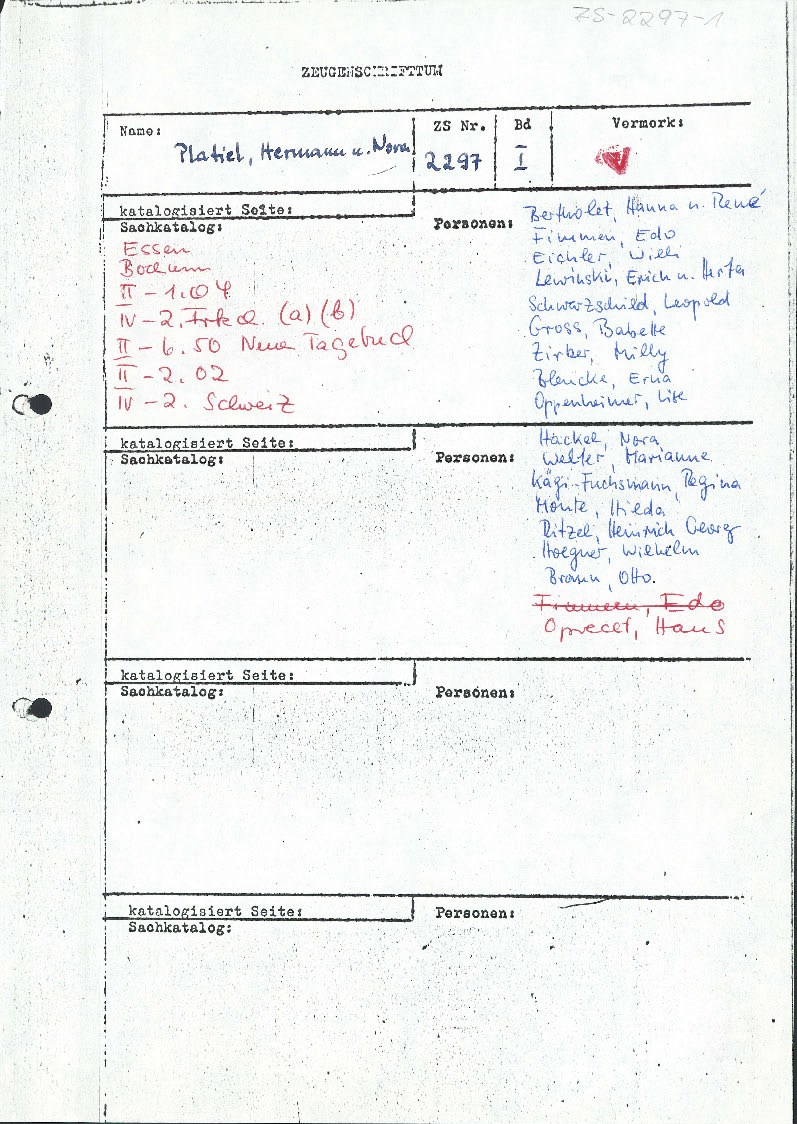 ZS-2297-1
ZEUGENSCHRIFTTUM
Name: Platiel, Hermann u. Nora
ZS Nr. 2297
Bd I
Vermerk:
katalogisiert Seite:
Sachkatalog:
Essen
Bochum
II - 1.04
IV - 2. Frkch. (a) (b)
II - 6.50 Neue Tagebuch
II - 2.02
IV - 2. Schweiz
Personen:
Bertholet, Hanna u. René
Fimmen, Edo
Eichler, Willi
Lewinski, Erich u. Herta
Schwarzschild, Leopold
Gross, Babette
Zirker, Milly
Blencke, Erna
Oppenheimer, Lise
katalogisiert Seite:
Sachkatalog:
Personen:
Häckel, Nora
Welter, Marianne
Kägi-Fuchsmann, Regina
Monte, Hilda
Ritzel, Heinrich Georg
Hoegner, Wilhelm
Braun, Otto.
Fimmen, Edo
Oprecht, Hans
katalogisiert Seite:
Sachkatalog:
Personen:
katalogisiert Seite:
Sachkatalog:
Personen: